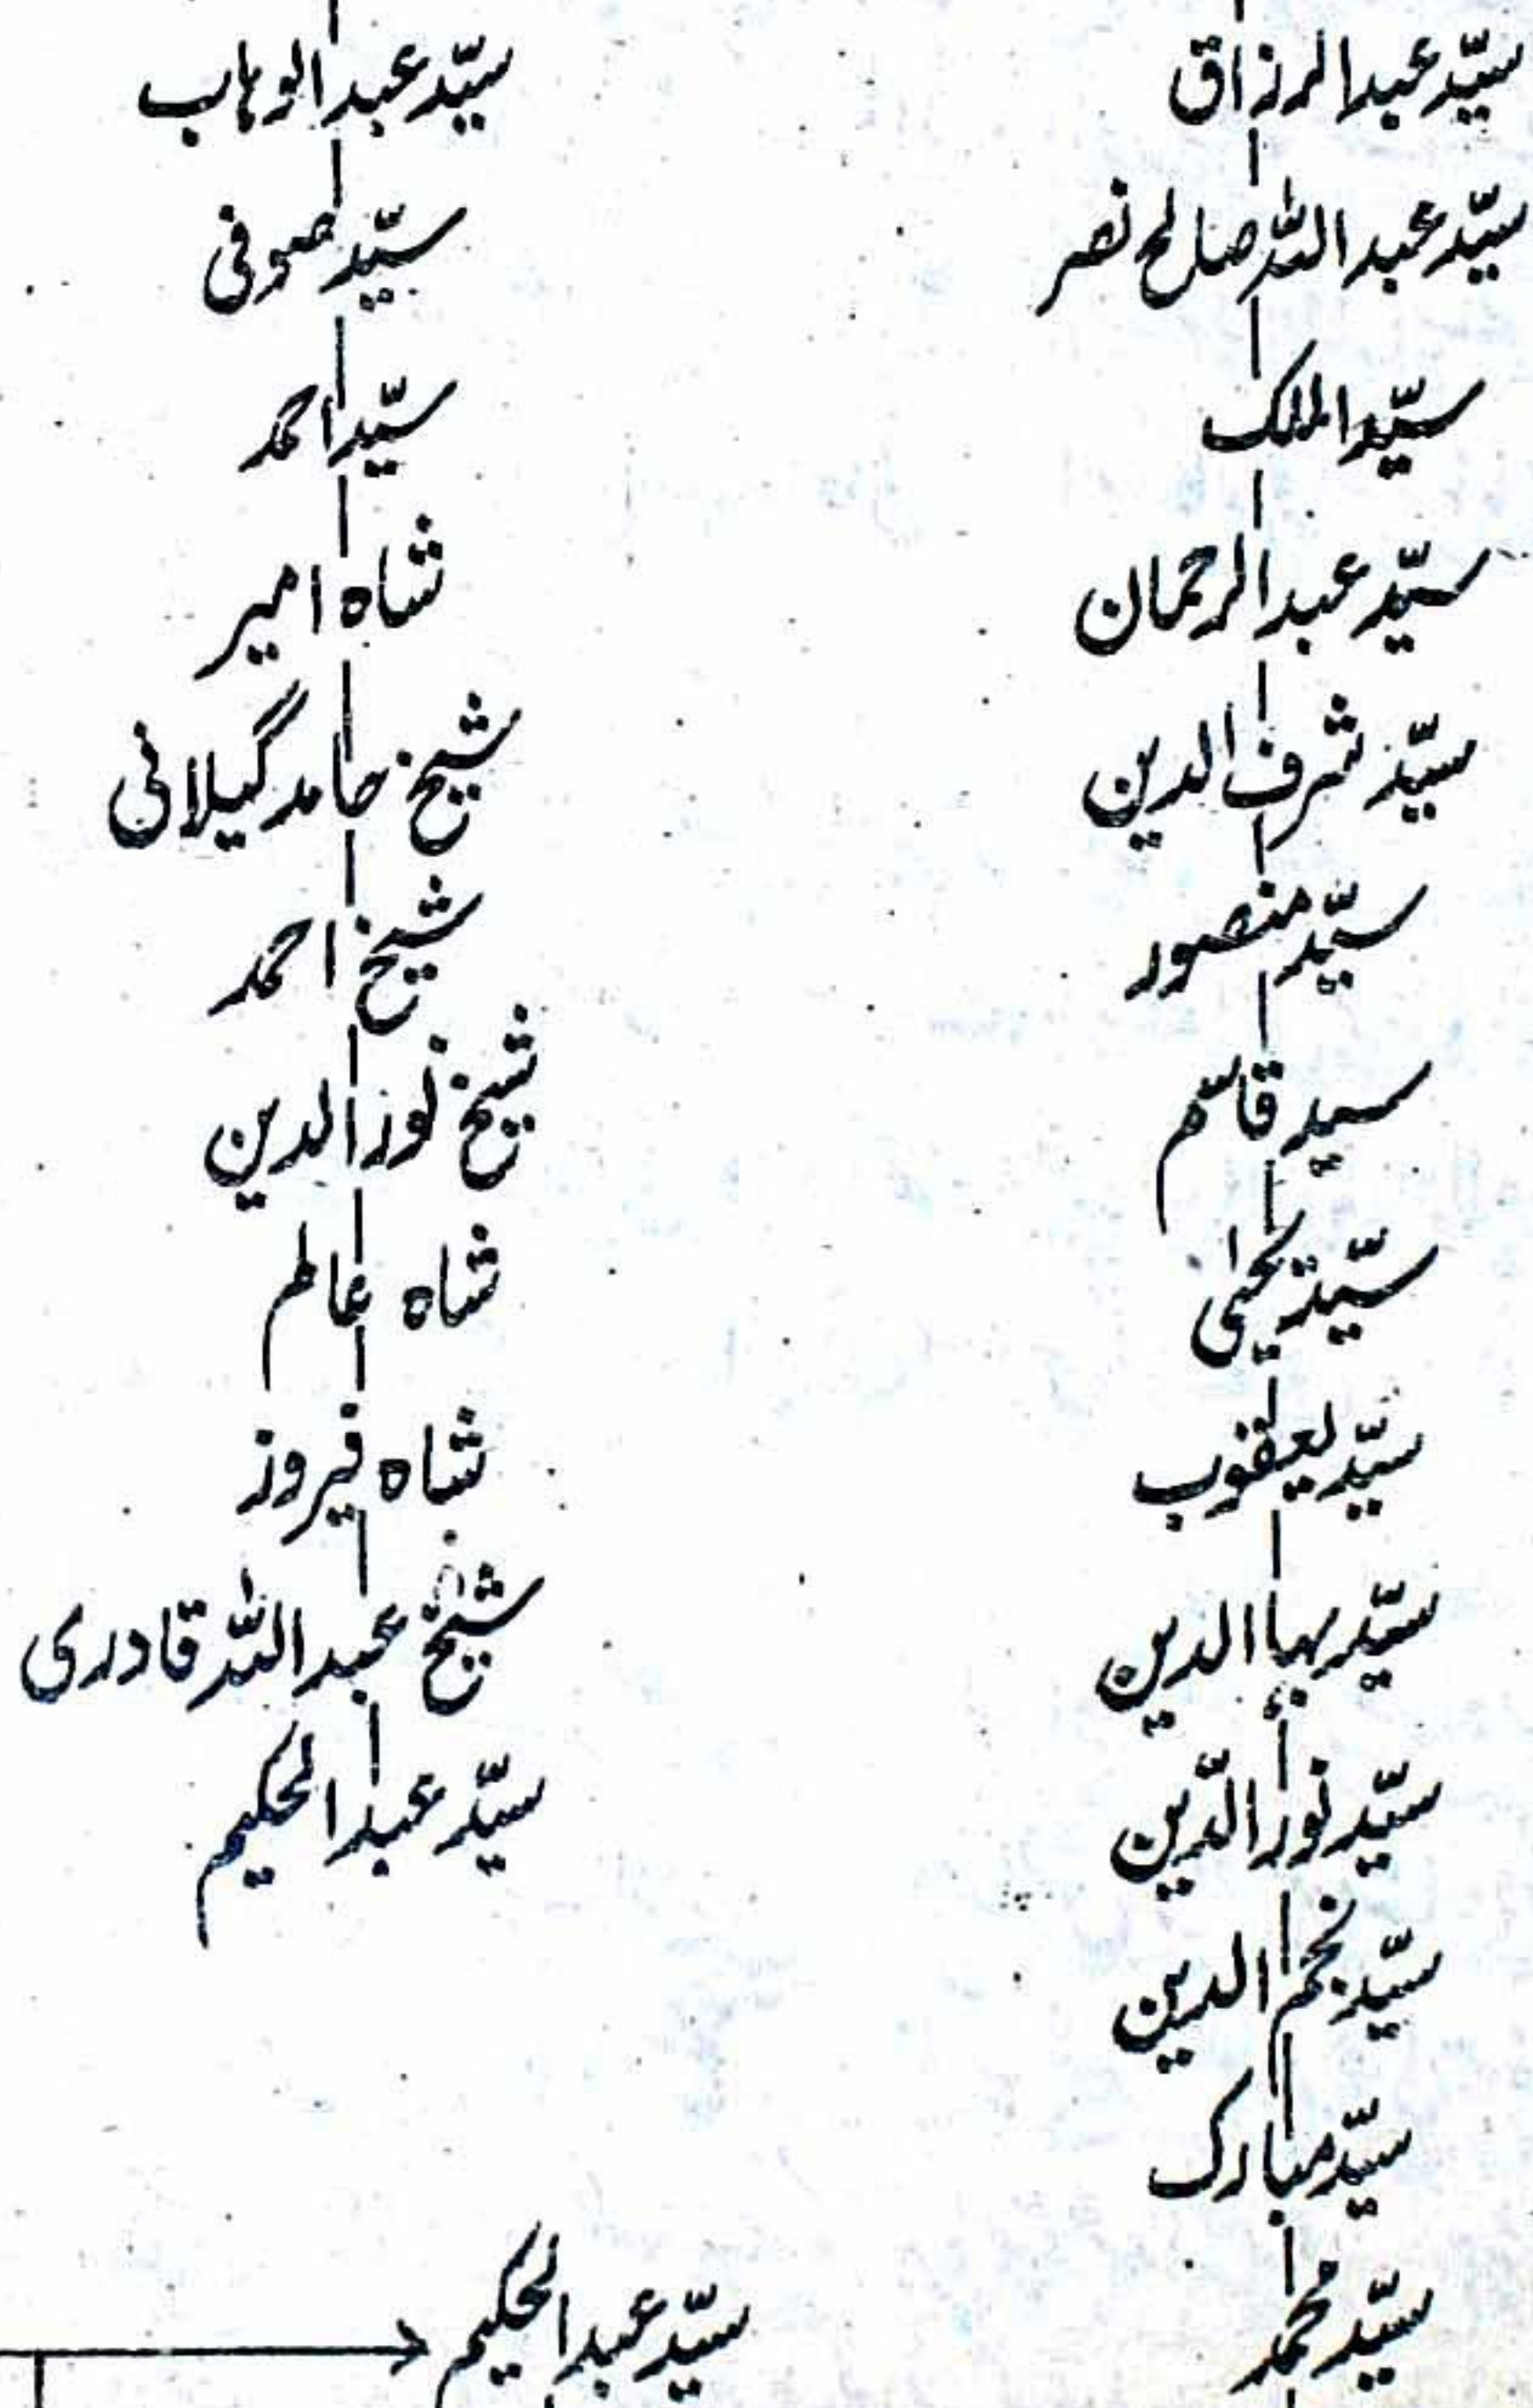 سیّد عبدالرزاق
سیّد عبداللہ صالح نصر
سیّد الملک
سیّد عبدالرحمان
سیّد شرف الدین
سیّد منصور
سید قاسم
سیّد یحیٰی
سیّد یعقوب
سیّد بہاالدین
سیّد نورالدّین
سیّد نجم الدین
سیّد مبارک
سیّد محمد
سیّد عبدالوہاب
سیّد صوفی
سیّد احمد
شاہ امیر
شیخ حامد گیلانی
شیخ احمد
شیخ نورالدین
شاہ عالم
شاہ فیروز
شیخ عبداللہ قادری
سیّد عبدالحکیم
سیّد عبدالحکیم